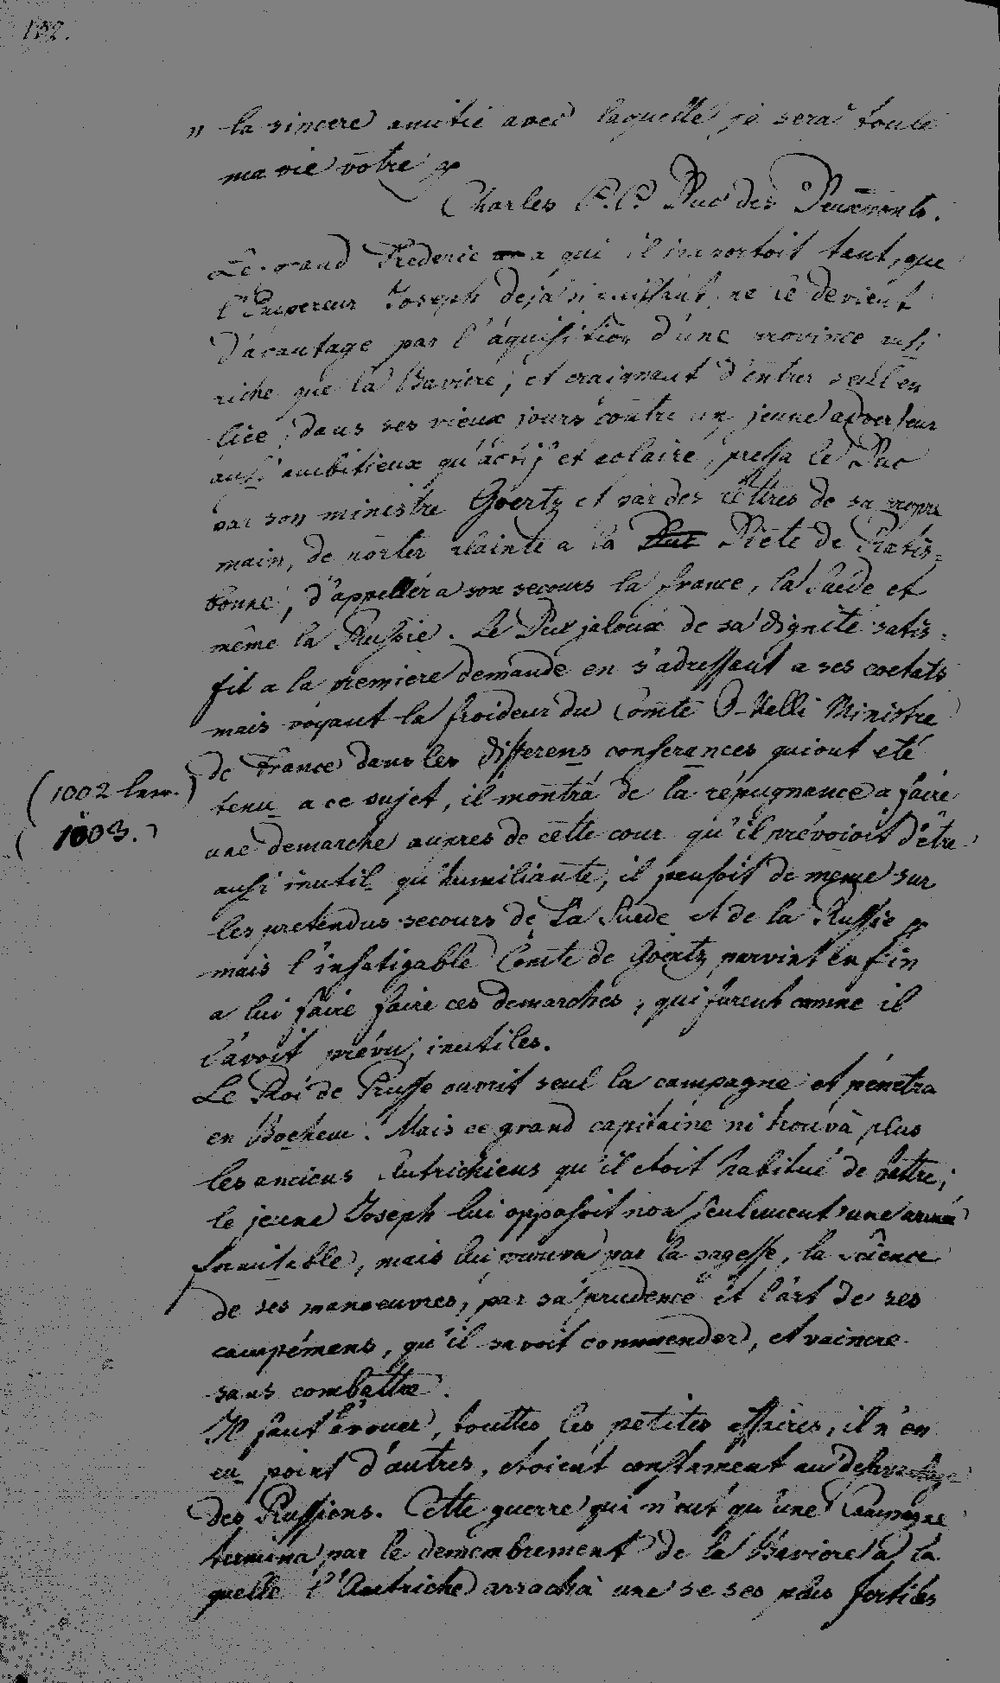 132.
" la sincere amitié avec laquelle je serai toute
ma vie votre
Charles P. P. Duc des Deuxponts.
Le grand Frederic a qui il importoit tant, que
l'Empereur Joseph deja si puissant, ne le devient
d'avantage par l'áquisition d'une province ausi
riche que la Baviere, et craignant d'entrer seul en
lice, dans ses vieux jours contre un jeune adverseur
ausi ambitieux qu'actif et eclairé, pressa le Duc
par son ministre Goertz et par des lettres de sa propre
main, de porter plainte a la Diete de Ratis=
bonne, d'appeller a son secours la france, la Suede et
même la Russie. Le Duc jaloux de sa dignité satis=
fit a la premiere demande en s'adressant a ses coetats
mais voyant la froideur du Comte O-Kelli Ministre
de France dans les differens conferances qui ont eté
(1002 lar.)
tenu a ce sujet, il montra de la répugnance a faire
(1003.)
une demarche aupres de cette cour qu'il prévoioit d'être
ausi inutil qu'humiliante, il pensoit de meme sur
les pretendus secours de la Suede et de la Russie
mais l'infatigable Comte de Goertz parvint enfin
a lui faire faire ces demarches, qui furent comme il
l'avoit prévu, inutiles.
Le Roi de Prusse ouvrit seul la campagne et pénetra
en Boheme. Mais ce grand capitaine ni trouvà plus
les anciens Autrichiens qu'il etoit habitué de battre;
le jeune Joseph lui opposoit non seulement une armée
formitable, mais lui prouva par la sagesse, la science
de ses manoeuvres, par sa prudence et l'art de ses
campémens, qu'il savoit commender, et vaincre
sans combattre.
Il faut avouer, touttes les petites affaires, il n'en
eu point d'autres, etoient constament au desavantage
des Prussiens. Cette guerre qui n'eut qu'une Campagne
termina par le demembrement de la Baviere a la
quelle l'Autriche arracha une de ses plus fertiles